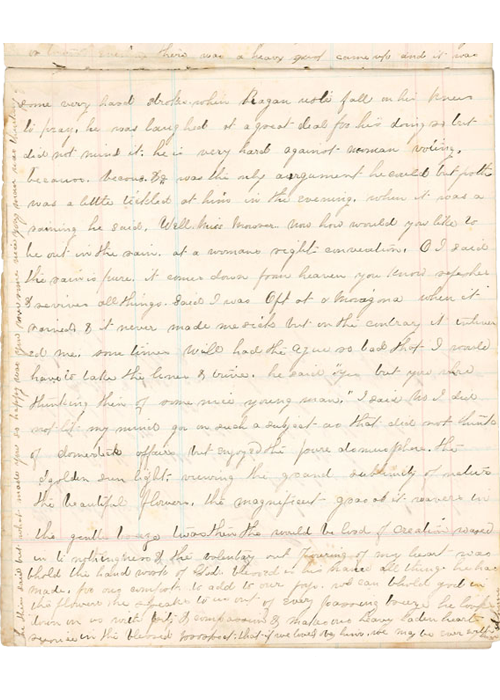 there was a heavy gust came up and it was
some very hard strokes when Ragan would fall on his knees
to pray, he was laughed at a great deal for his doing so but
did not mind it. he is very hard against woman voting,
because. because & was the only argument he could but forth
was a little tickled at him in the evening, when it was a
raining he said. Well Miss how would you like to
be out in the rain. at a womans right convention. O I said
the rain is pure, it comes down from heaven you know refreshes
& revives all things. Said I was Oft at when it
rained & it never made me sick but on the contrary it
ed me. some times Will had the ague so bad that I would
have to take the lines & drive. he said "Yes but you was
thinking then of some nice young man." I said No I did
not let my mind go on such a subject as that did not think
of domestick affairs but the pure atmosphere. the
golden sun light viewing the grand sublimity of nature
the beautiful flowers, the magnificent grass as it waves in
the gentle breeze twas then the would be lord of Creation
in to nothingness & the voluntary out pouring of my heart was
behold the hand work of God. blessed in his name all things he has
made, for our comfort to add to our joys. we can behold god in
the flowers he speaks to us out of every passing breeze he looks
down on us with pity & compassion & makes our heavy laden hearts
rejoice in the blessed that if we love by him, we may be ever with
he then said but what made you so happy was you